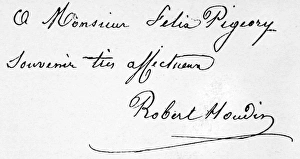 A Monsieur Felix Pigeory
Souvenir très affectueux
Robert Houdin